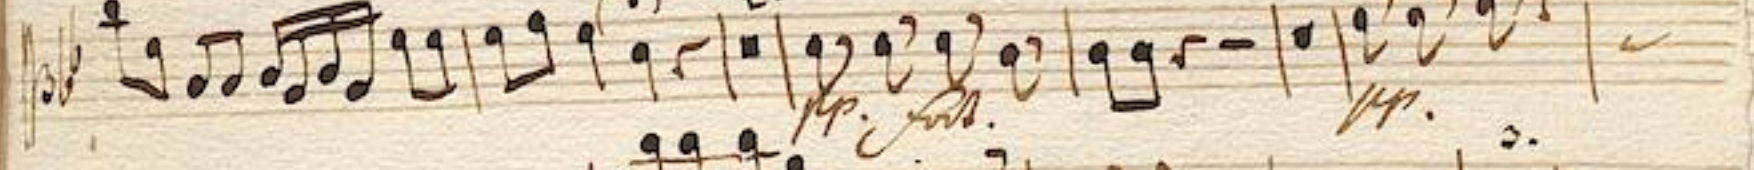 pp. fort.
pp.